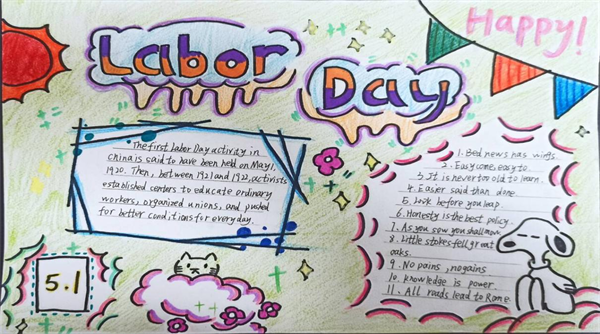 Labor
Day
Happy!
The first Labor Day activity in
China is said to have been held on May 1,
1920. Then, between 1921 and 1922, activists
established centers to educate ordinary
workers, organized unions, and pushed
for better conditions for everyday.
1. Bad news has wings.
2. Easy come, easy to
3. It is never too old to learn.
4. Easier said than done
5. Look before you leap
6. Honesty is the best policy.
7. As you sow you shall mow
8. Little stokes fell great
oaks.
9. No pains, no gains
10. Knowledge is power.
11. All roads lead to Rome.
5.1